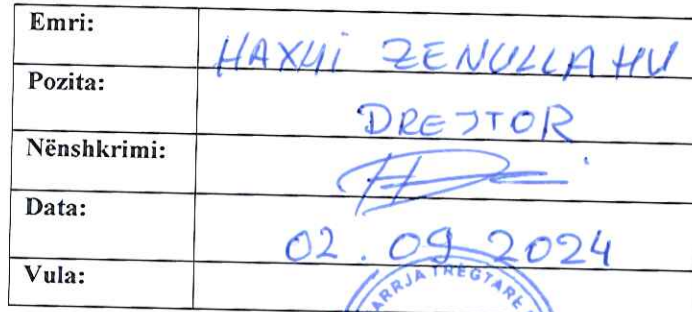 Emri: HAXHI ZENULLAHU
Pozita: DREJTOR
Nënshkrimi:
Data: 02.09.2024
Vula:
ARRJA TREGTARE